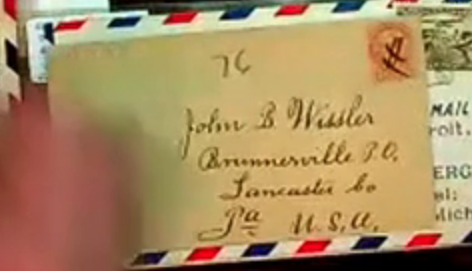 76
John B. Wissler
Brunnerville P.O.
Lancaster Co
Pa U.S.A.
MAIL
roit.
ERG